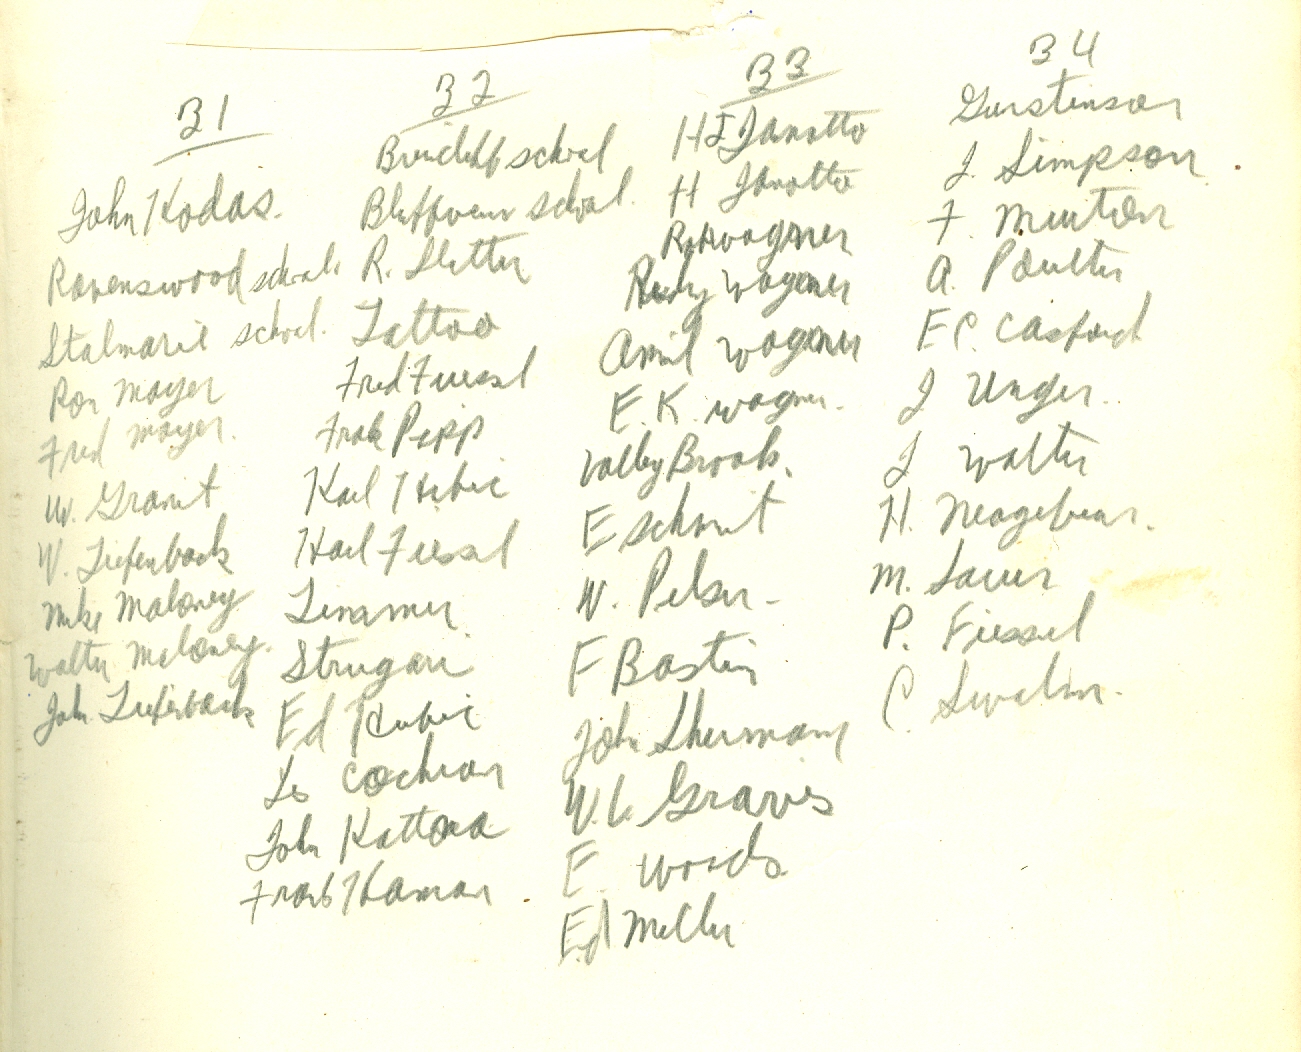 B1
John Kodas.
Ravenswood school.
Stalmarie school.
Ron Mayer
Fred Mayer.
W. Granit
W. Tiefenback
Mike Maloney
Walter Maloney.
John Tiefenback
B2
school
Bluffview school.
R. Sletter
Tattoo
Fred Fiessel
Frank Pipp
Karl Kubic
Karl Fiessel
Strugari
Ed Kubic
Les Cochran
John Kattona
Frank Kaman
B3
H I Janotto
H Janotto
R. Wagner
Rudy Wagner
Amil Wagner
E. K. Wagner.
Valley Brook.
E Schmit
W. Pelser.
F Bastin
John Shermann
W. L. Graves
E. Woods
Ed Miller
B4
J. Simpson
F. Minton
A. Poulter
E. C.
J Unger.
J Walter
H.
M. Sauer
P. Fiessel
C.